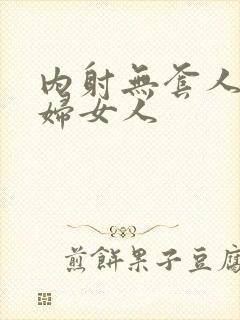 內射無套人
婦女人
煎餅果子豆腐